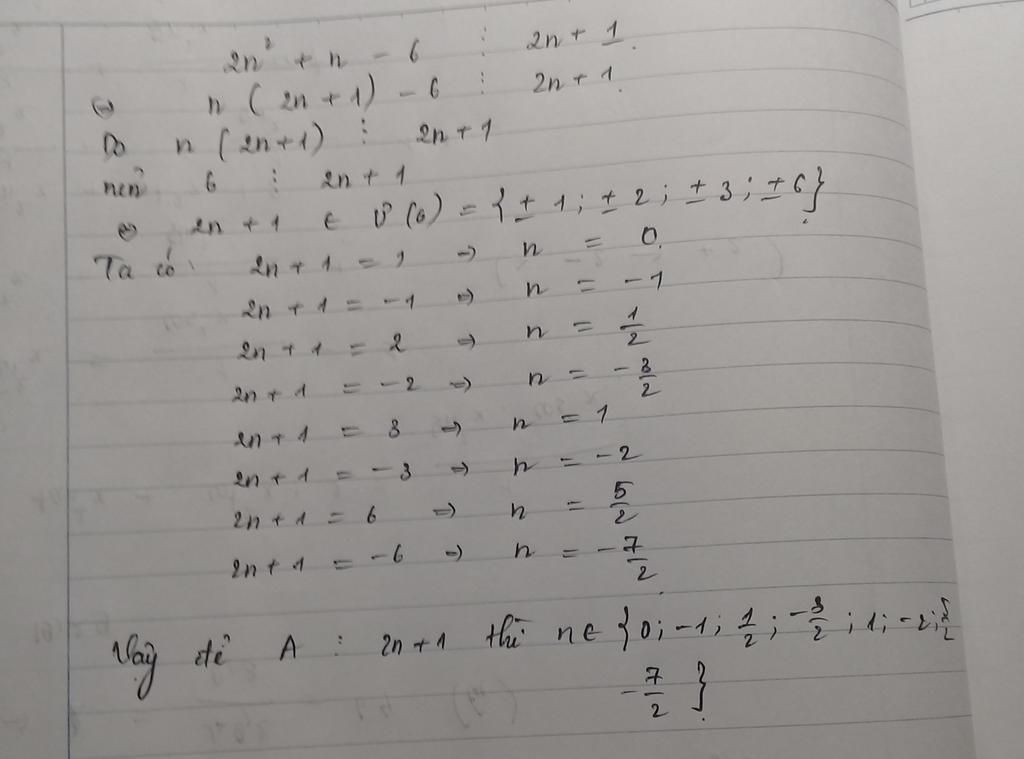 2n² + n - 6 ⋮ 2n + 1.
(=) n ( 2n + 1 ) - 6 ⋮ 2n + 1.
Do n ( 2n + 1 ) ⋮ 2n + 1
nên 6 ⋮ 2n + 1
(=) 2n + 1 ∈ Ư (6) = { ± 1 ; ± 2 ; ± 3 ; ± 6 }.
Ta có : 2n + 1 = 1 => n = 0.
2n + 1 = -1 => n = -1
2n + 1 = 2 => n = 1/2
2n + 1 = -2 => n = -3/2
2n + 1 = 3 => n = 1
2n + 1 = -3 => n = -2
2n + 1 = 6 => n = 5/2
2n + 1 = -6 => n = -7/2.
Vậy để A ⋮ 2n + 1 thì n ∈ { 0 ; -1 ; 1/2 ; -3/2 ; 1 ; -2 ; 5/2
-7/2 }.